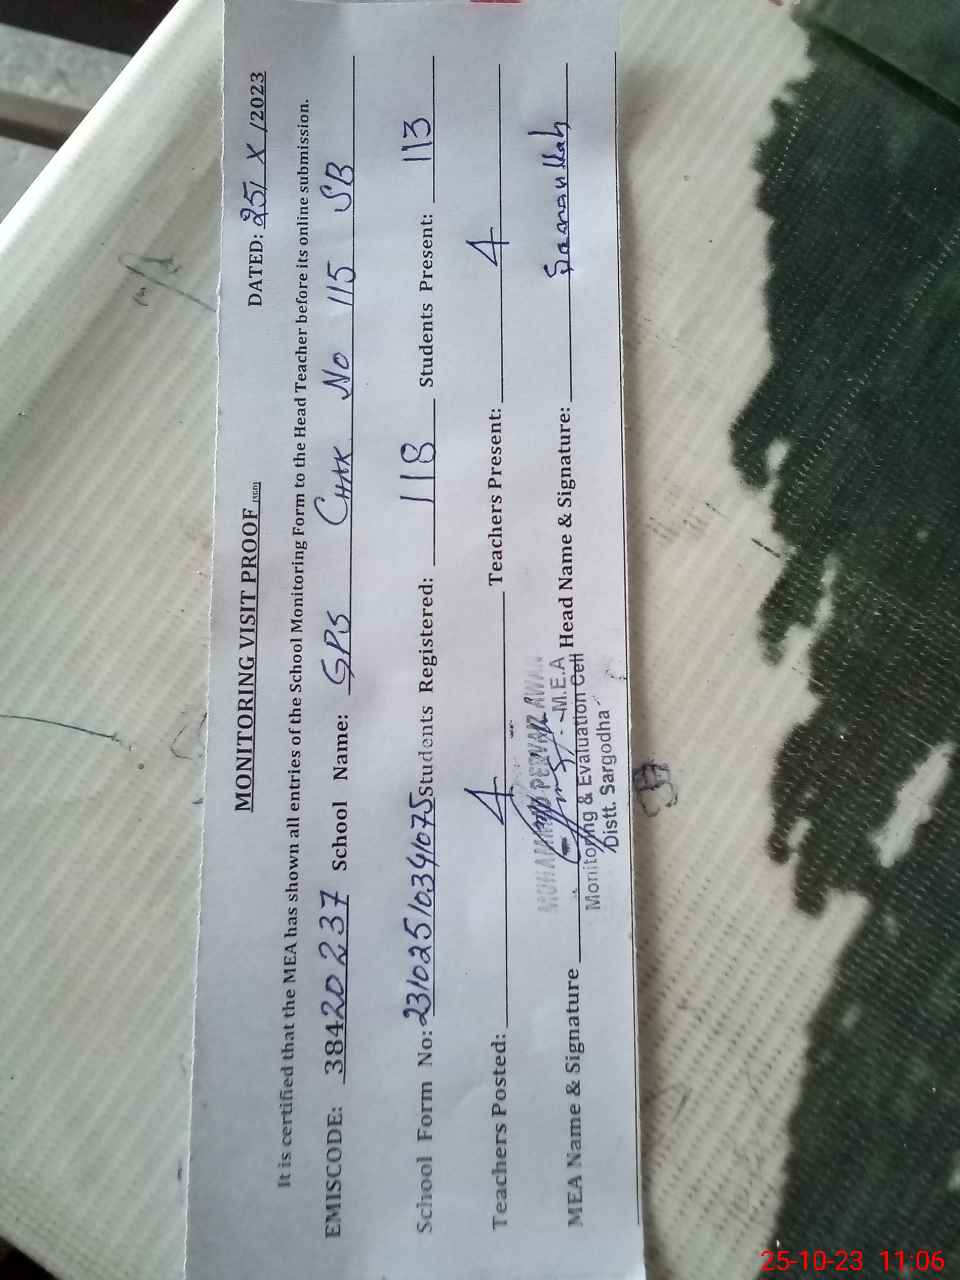 MONITORING VISIT PROOF
DATED: 25/ X /2023
It is certified that the MEA has shown all entries of the School Monitoring Form to the Head Teacher before its online submission.
EMISCODE: 38420237 School Name: GPS CHAK No 115 SB
School Form No: Students Registered: 118 Students Present: 113
Teachers Posted: 4 Teachers Present: 4
MEA Name & Signature Head Name & Signature: Sanaullah
M.E.A
Monitoring & Evaluation Cell
Distt. Sargodha
25-10-23 11:06